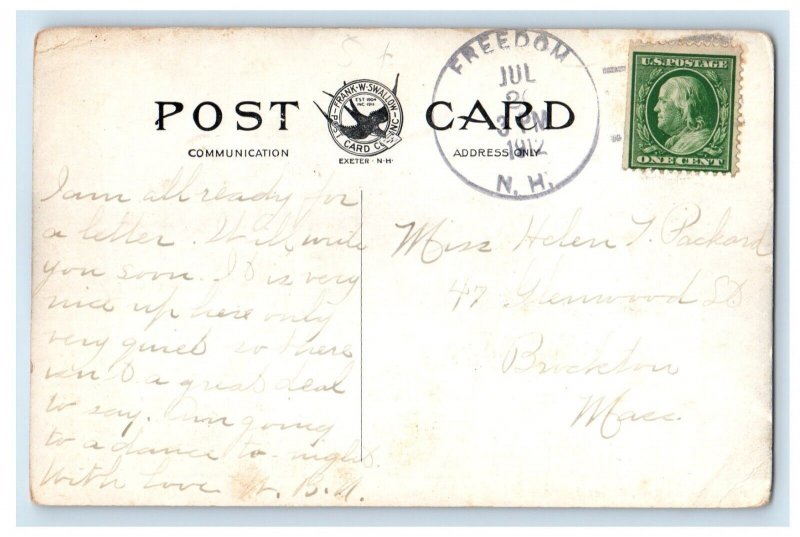 FREEDOM
JUL
3 PM
1912
N. H.
U.S. POSTAGE
ONE CENT
POST CARD
FRANK·W·SWALLOW
POST CARD CO. INC
EST 1904
INC 1911
EXETER·N·H·
COMMUNICATION
ADDRESS ONLY
I am all ready for
a letter. Will write
you soon. It is very
nice up here only
very quiet so there
isn't a great deal
to say. Am going
to a dance to-night.
With love
Miss Helen T. Packard
47 Glenwood St
Brockton
Mass.